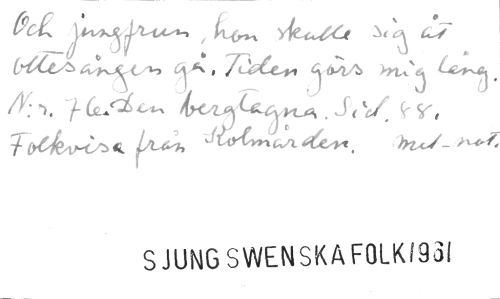 Och jungfrun, hon skulle sig åt
ottesången gå. Tiden görs mig lång.
N:r. 76. Den bergtagna. Sid. 88.
Folkvisa från Kolmården. med not.
SJUNG SWENSKA FOLK/1961